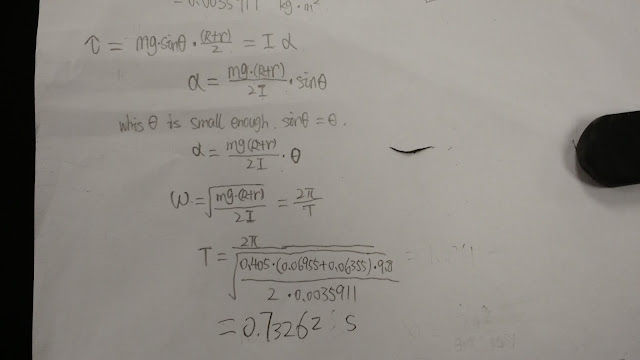 = 0.0035911 kg·m²
τ = mg·sinθ · (R+r)/2 = I α
α = mg·(R+r)/2I · sinθ
whis θ is small enough. sinθ = θ.
α = mg(R+r)/2I · θ
ω = √(mg·(R+r)/2I) = 2π/T
T = 2π/√(0.405·(0.06955+0.06355)·9.8/2·0.0035911)
= 0.73262 s